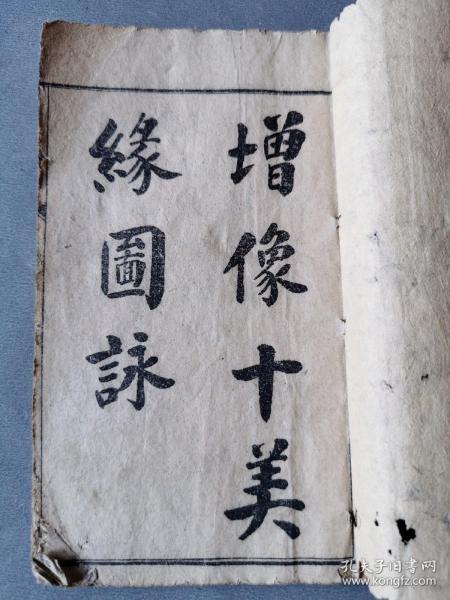 增像十美
緣圖詠
孔夫子旧书网
www.kongfz.com